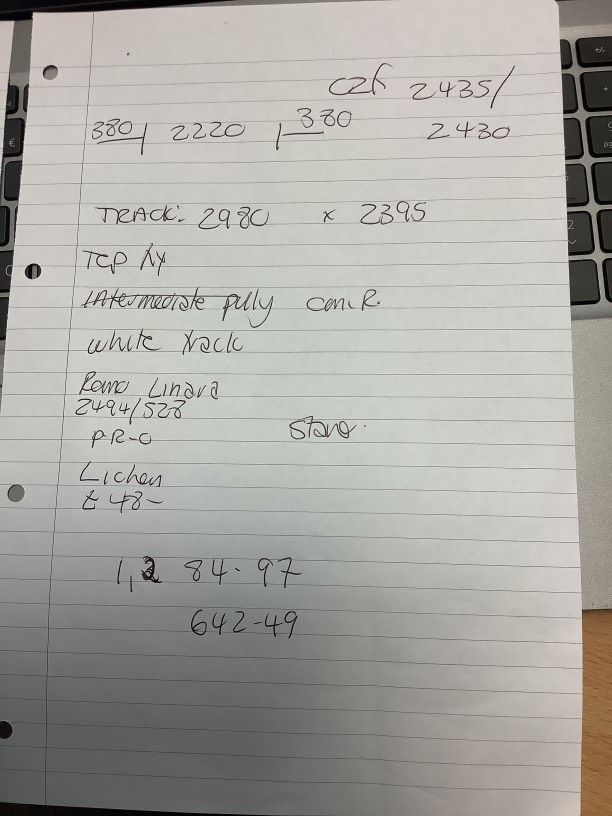 CZF 2435/
380 | 2220 | 380 2430
TRACK: 2980 x 2395
TOP
Intermediate pully
white track
Romo Linara
2494/528
PR-O
Stone.
Lichen
£48-
1,2 84-97
642-49